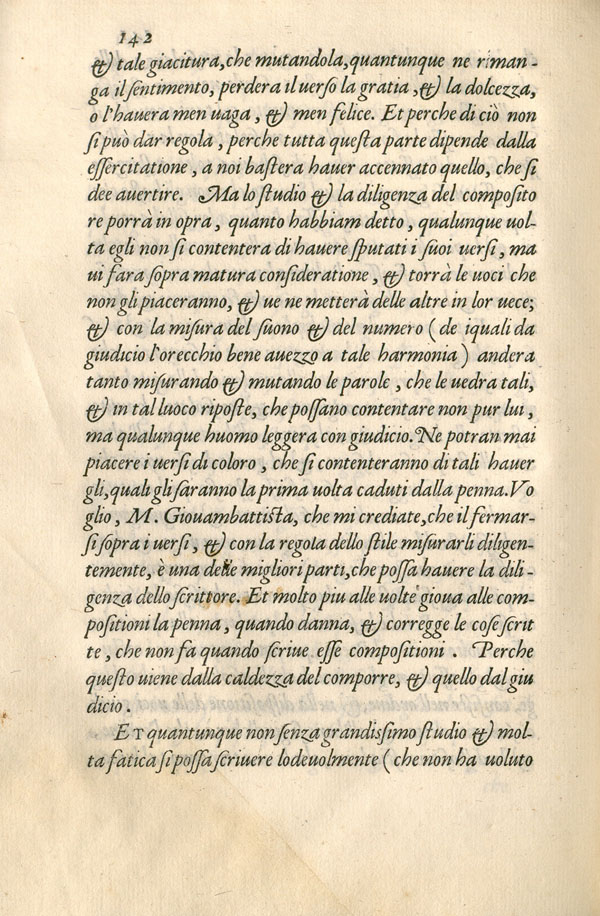 142
& tale giacitura, che mutandola, quantunque ne riman-
ga il sentimento, perdera il uerso la gratia, & la dolcezza,
o l'hauera men uaga, & men felice. Et perche di ciò non
si può dar regola, perche tutta questa parte dipende dalla
essercitatione, a noi bastera hauer accennato quello, che si
dee auertire. Ma lo studio & la diligenza del composito
re porrà in opra, quanto habbiam detto, qualunque uol-
ta egli non si contentera di hauere sputati i suoi uersi, ma
ui fara sopra matura consideratione, & torrà le uoci che
non gli piaceranno, & ue ne metterà delle altre in lor uece;
& con la misura del suono & del numero (de iquali da
giudicio l'orecchio bene auezzo a tale harmonia) andera
tanto misurando & mutando le parole, che le uedra tali,
& in tal luoco riposte, che possano contentare non pur lui,
ma qualunque huomo leggera con giudicio. Ne potran mai
piacere i uersi di coloro, che si contenteranno di tali hauer
gli, quali gli saranno la prima uolta caduti dalla penna. Vo
glio, M. Giouambattista, che mi crediate, che il fermar-
si sopra i uersi, & con la regola dello stile misurarli diligen-
temente, è una delle migliori parti, che possa hauere la dili-
genza dello scrittore. Et molto piu alle uolte gioua alle com-
positioni la penna, quando danna, & corregge le cose scrit
te, che non fa quando scriue esse compositioni. Perche
questo uiene dalla caldezza del comporre, & quello dal giu
dicio.
ET quantunque non senza grandissimo studio & mol-
ta fatica si possa scriuere lodeuolmente (che non ha uoluto